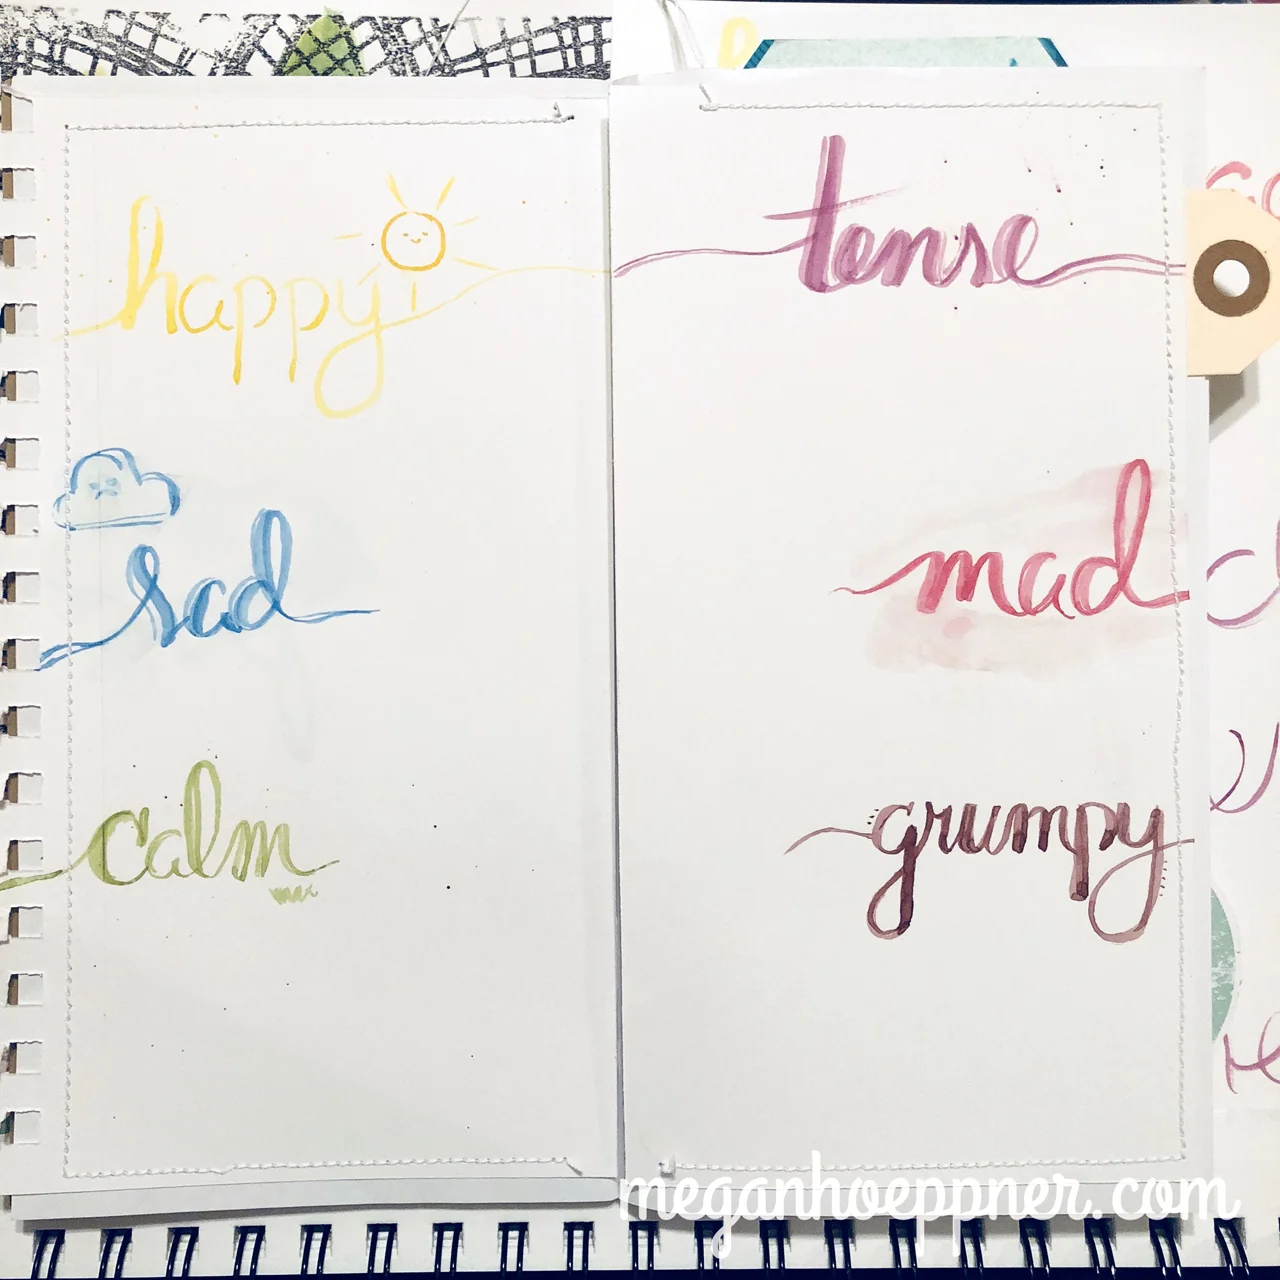 happy
sad
calm
tense
mad
grumpy
meganhoeppner.com